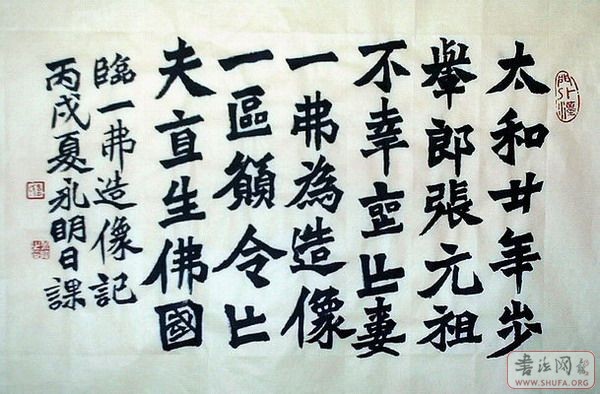 太和廿年步
轝郎張元祖
不幸喪亡妻
一弗為造像
一區願令亡
夫直生佛國
臨一弗造像記
丙戌夏永明日課
书法网
WWW.SHUFA.ORG